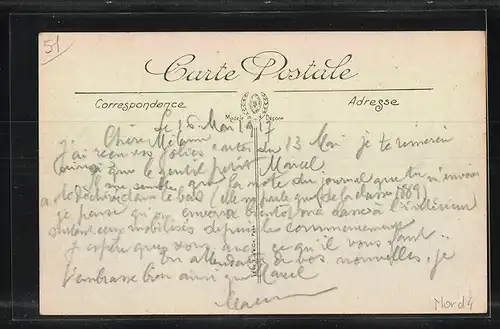 51
Carte Postale
Correspondance
Adresse
Modèle Déposé
le 16 Mai 1917
Chère
J'ai reçu vos jolies cartes du 13 Mai je te remercie
ainsi que le gentil petit Marcel
Il me semble que la note du journal que tu m'envoies
dans le bas (elle ne parle que de la classe 1889)
je pense qu'on enverra bientôt ma classe à l'intérieur
surtout ceux mobilisés depuis le commencement
J'espère que vous avez ce qu'il vous faut
En attendant de vos nouvelles, je
t'embrasse bien ainsi que Marcel
Nord 4